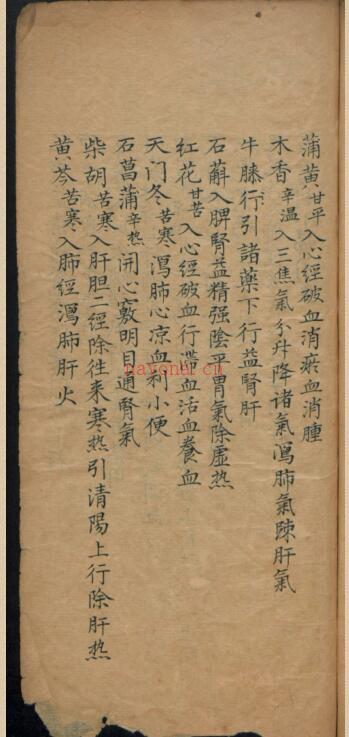 蒲黄甘平入心經破血消瘀血消腫
木香辛温入三焦氣分升降诸氣瀉肺氣踈肝氣
牛膝行引諸藥下行益腎肝
石斛入脾腎益精强陰平胃氣除虚热
红花甘苦入心經破血行血活血養血
天门冬苦寒瀉肺心凉血利小便
石菖蒲辛热開心竅明目通腎氣
柴胡苦寒入肝胆二經除往来寒热引清陽上行除肝热
黄芩苦寒入肺經瀉肺肝火